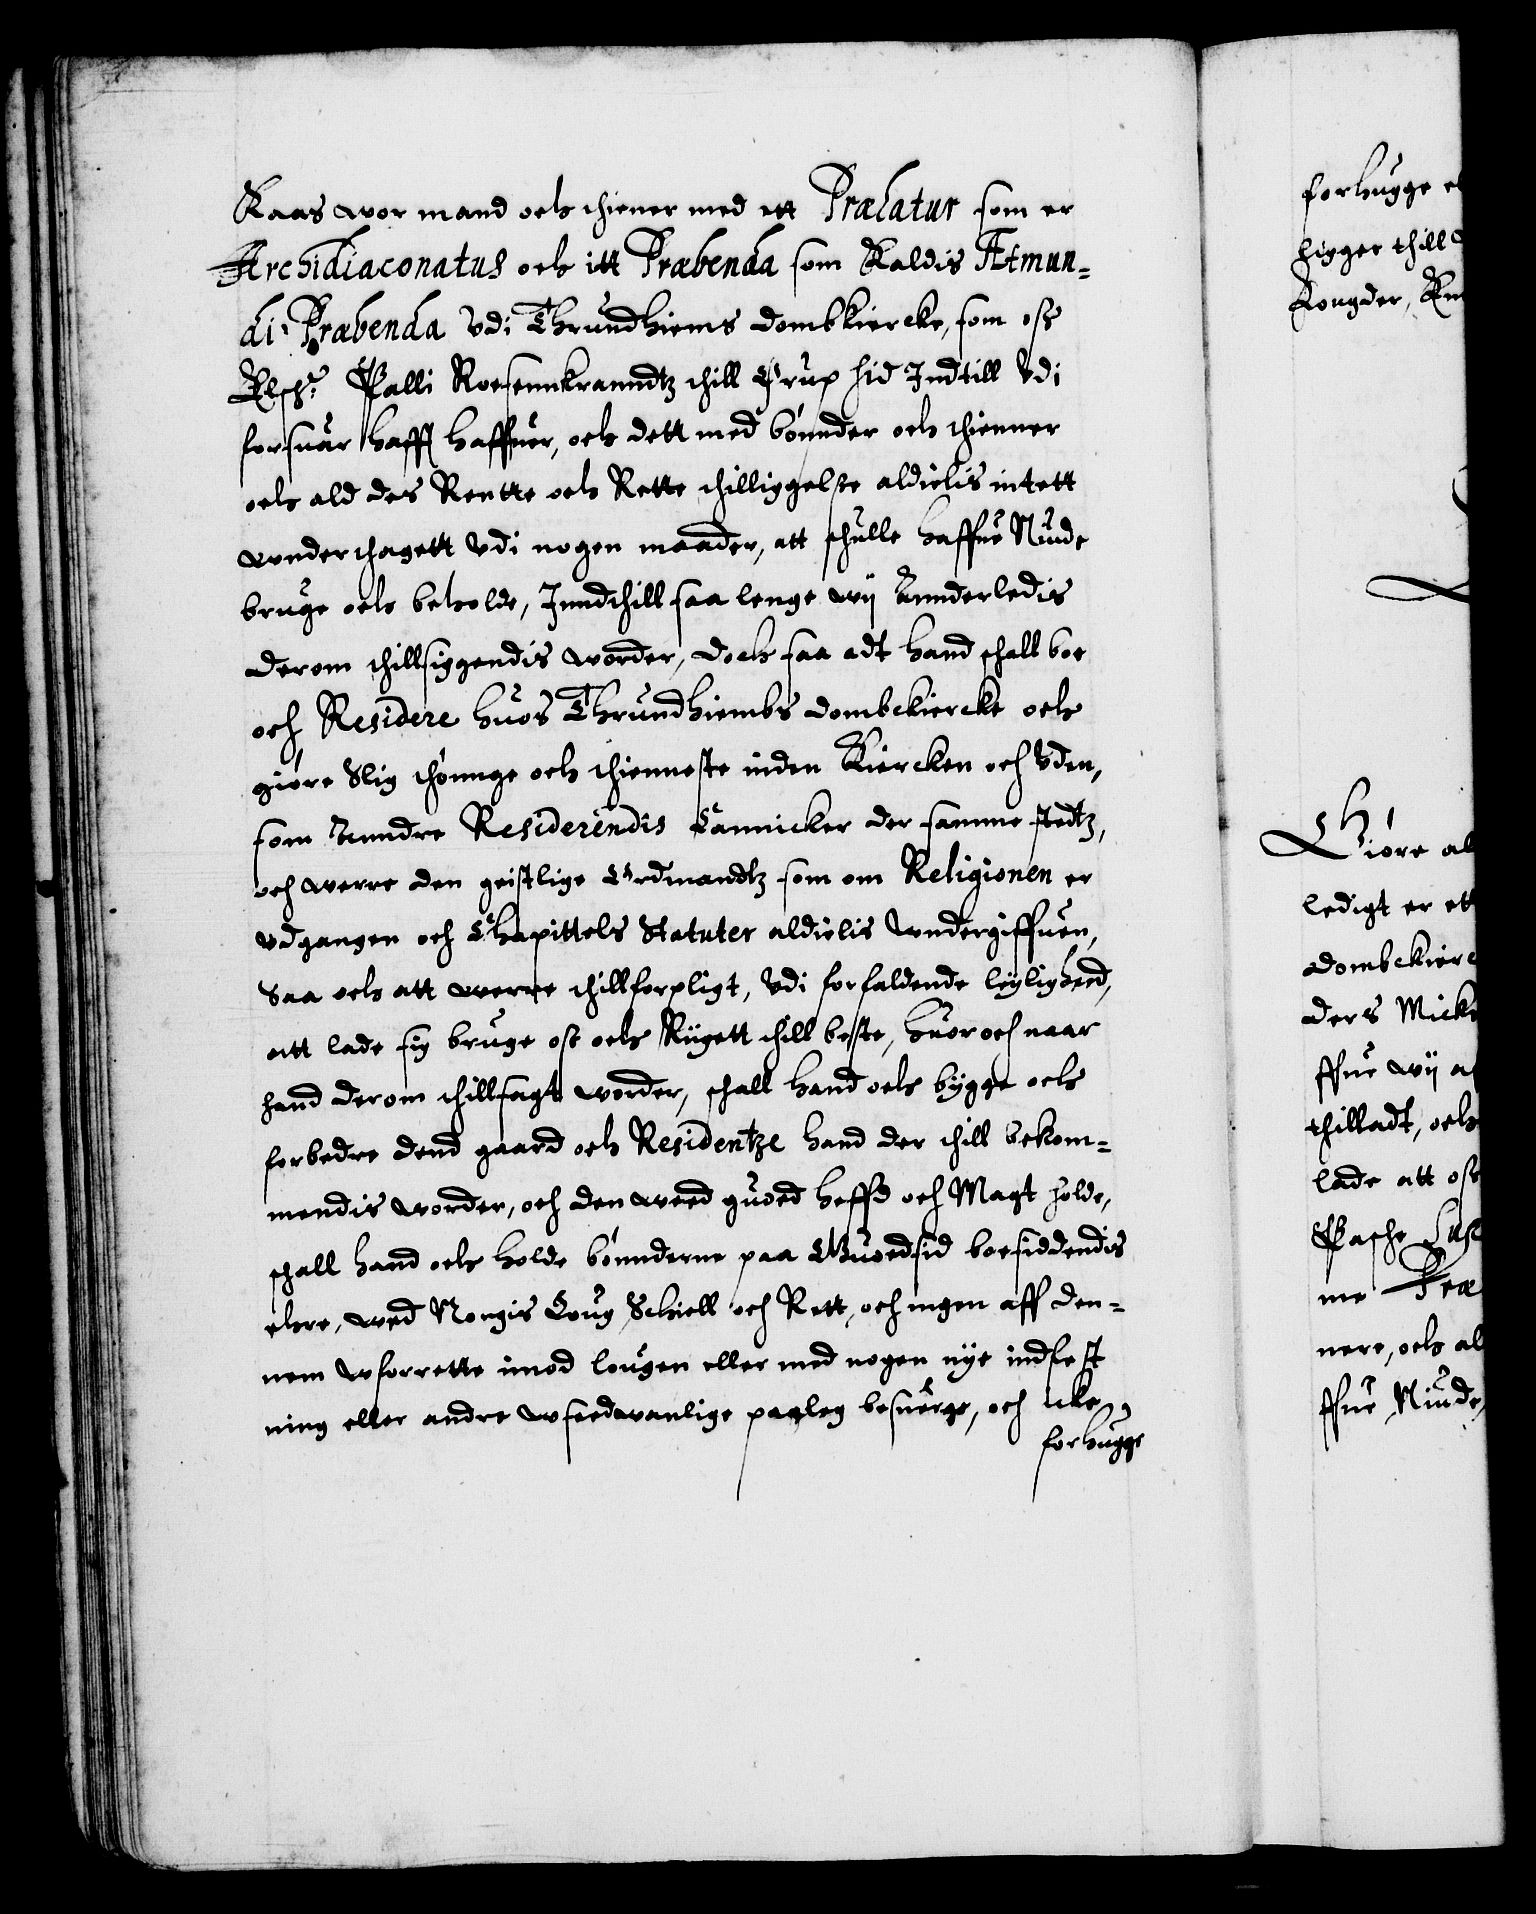 Kaas wor mand och thiener med ett Prælatur som er
Archidiaconatus och itt Præbenda som Kaldis Atmun-
di Præbenda Vdi Thrundhiems Dombkiercke, som oss
Elsch: Palli Roesennkranndtz thill Ørup hid Indtill Vdi
forsuar hafft haffuer, och dett med bønnder och thienner
och ald des Rentte och Rette thilliggelse aldielis intett
wnderthagett Vdi nogen maader, att schulle haffue Niude
bruge och beholde, Inndthill saa lenge wij Annderledis
derom thillsiggendis worder, doch saa adt hand schall boe
och Residere huos Thrundhiembs Dombckiercke och
giøre Slig thönnge och thienneste inden Kiercken och Vden,
som Anndre Residerendis Cannicker der samme stedtz,
och werre den geistlige Ordinandtz som om Religionen er
vdgangen och Chapittels Statuter aldielis Vndergiffuen,
Saa och att werre thillforpligt, Vdi forfaldende leyligheed,
att lade sig bruge oss och Riigett thill beste, huor och naar
hand derom thillsagt worder, schall hand och bygge och
forbedre dend gaard och Residentze hand der thill bekom-
mendis worder, och den weed guoed heffd och Magt holde,
schall hand och holde bønnderne paa Guoedsid boesiddendis
ehre, wed Norgis Loug Schiell och Rett, och ingen aff den-
nem wforrette imod lougen eller med nogen nye indfest
ning eller andre wseedwanlige paaleg besuerge, och icke
forhugge

forhugge
ligger thill
Longder,

Giøre al
ledigt er ett
Dombckierc
ders Micke
ffue wij a
thilladt, och
lade att oss
Pasche
me Præ
nere, och al
ffue Niude,